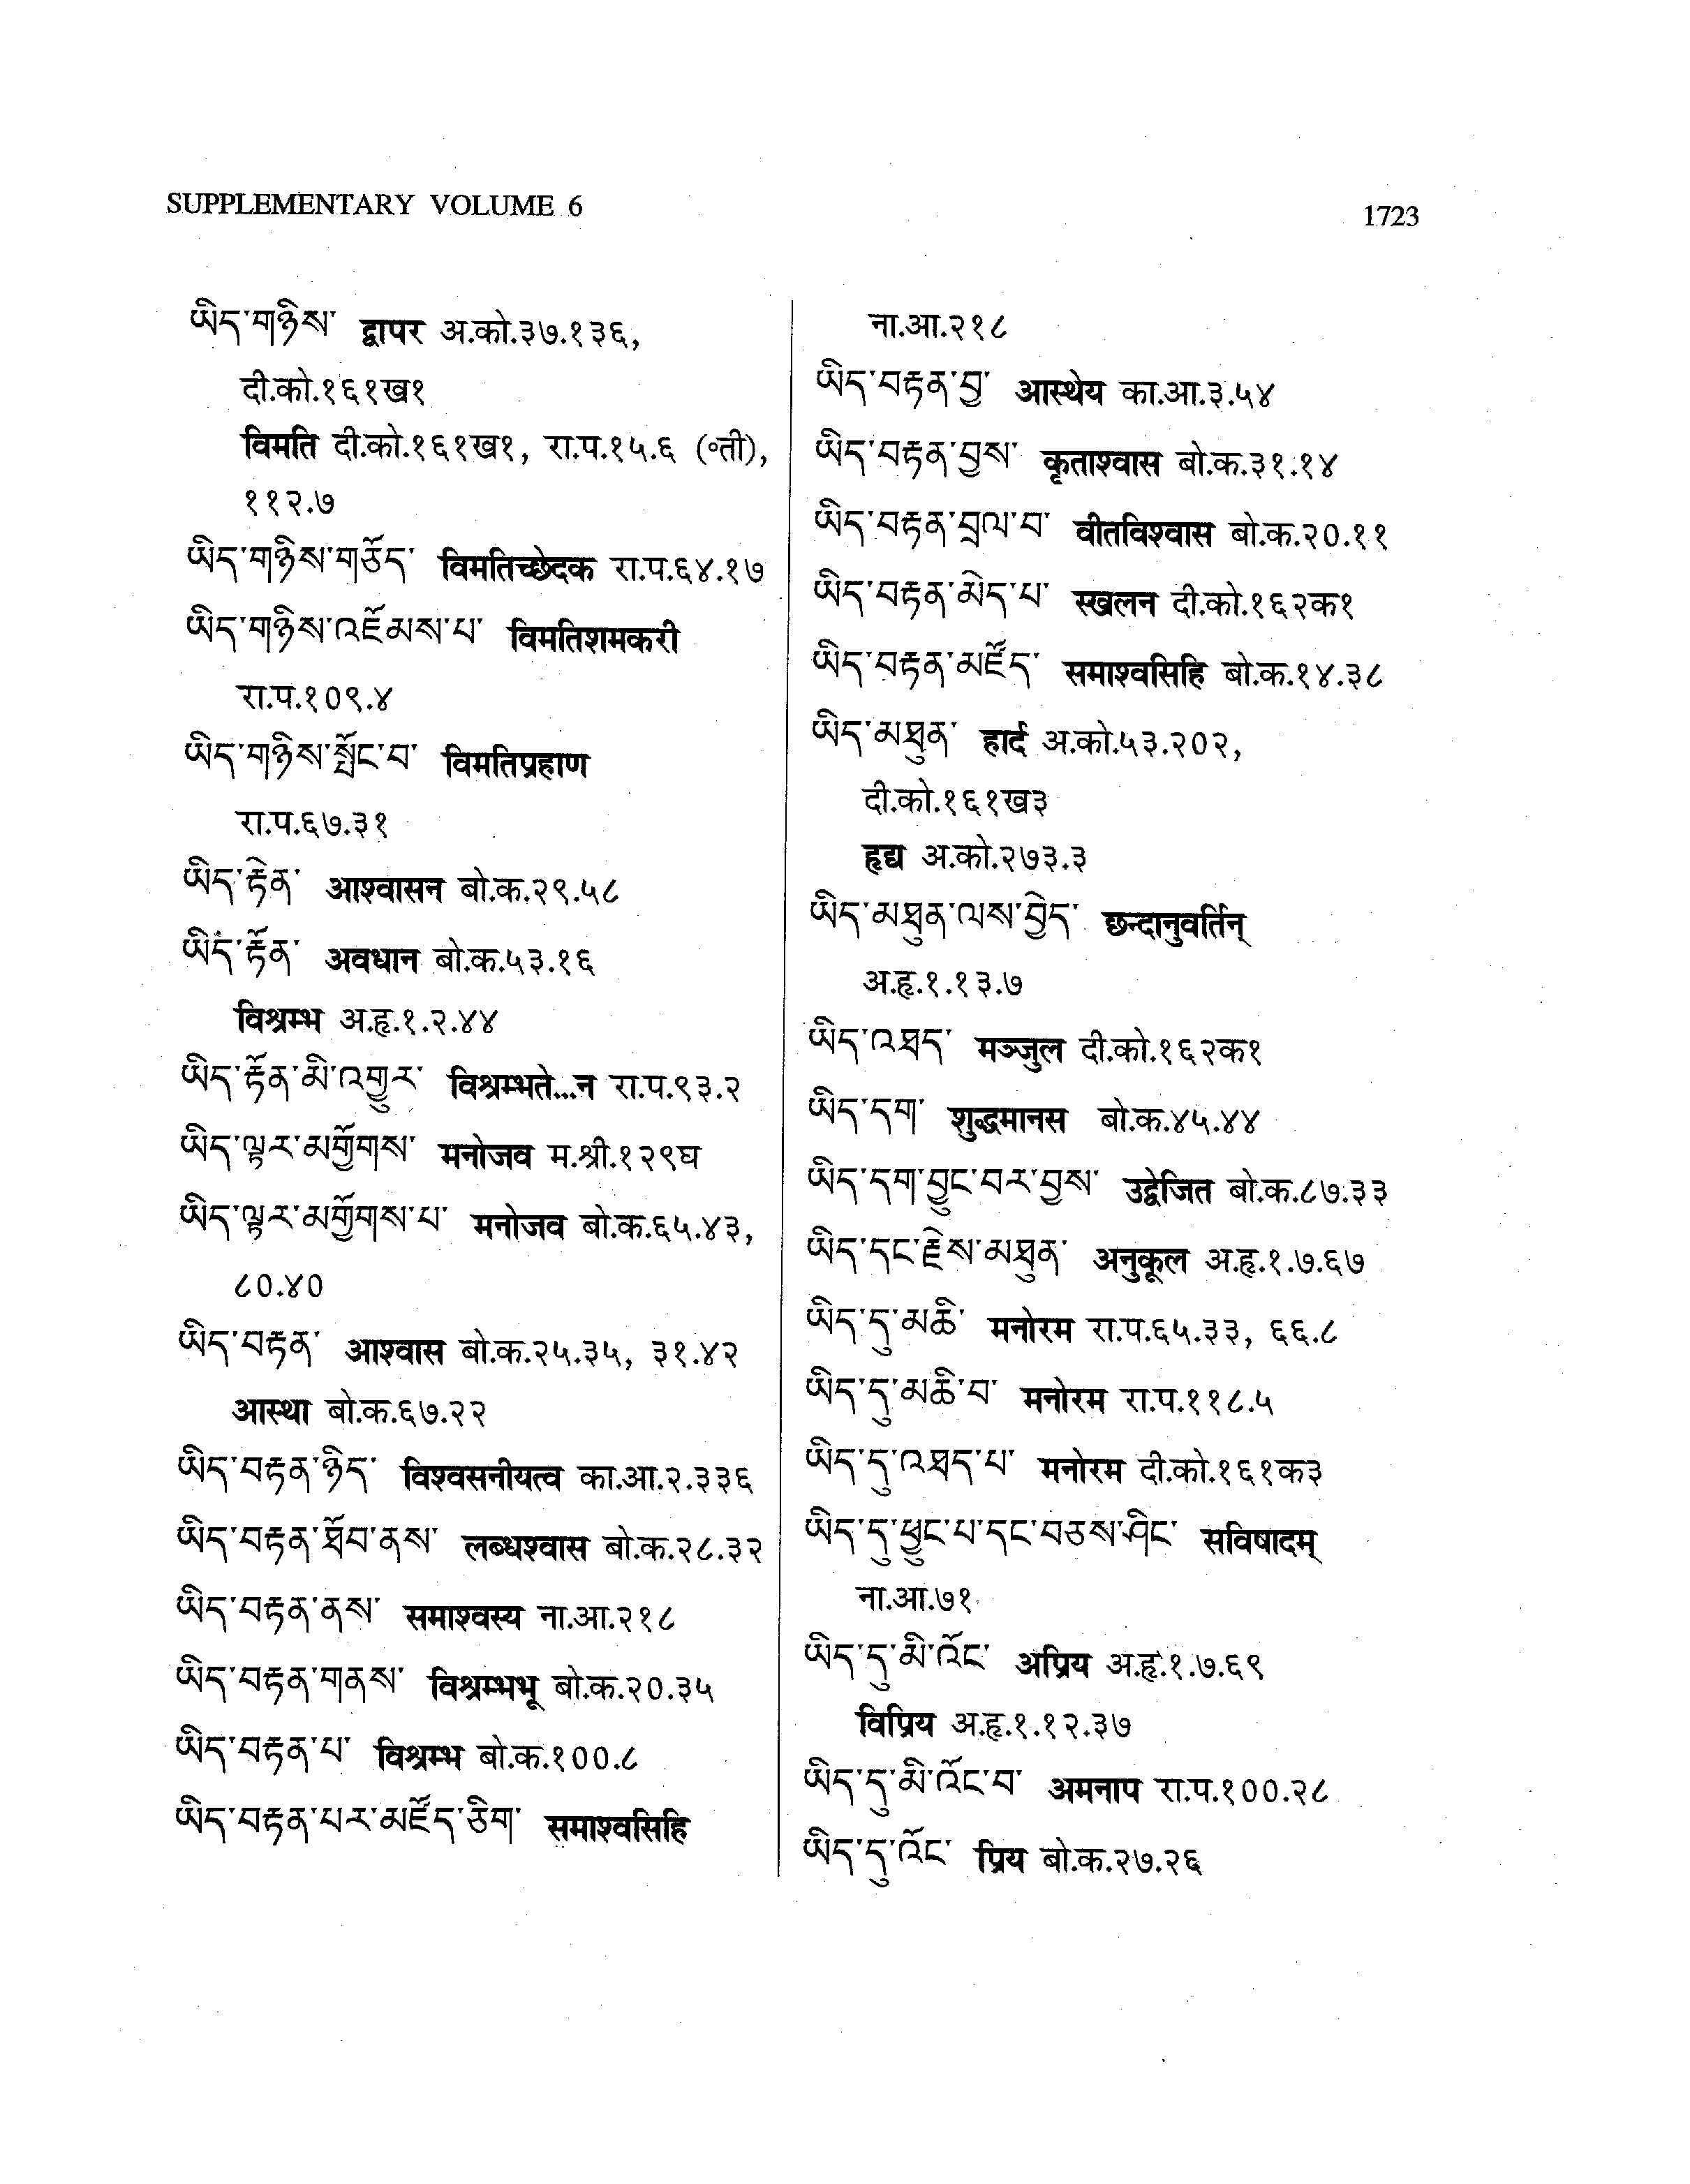 SUPPLEMENTARY VOLUME 6
1723
ཡིད་གཉིས་ द्वापर अ.को.३७.१३६,
दी.को.१६१ख१
विमति दी.को.१६१ख१, रा.प.१५.६ (॰ती),
११२.७
ཡིད་གཉིས་གཅོད་ विमतिच्छेदक रा.प.६४.१७
ཡིད་གཉིས་འཇོམས་པ་ विमतिशमकरी
रा.प.१०९.४
ཡིད་གཉིས་སྤོང་བ་ विमतिप्रहाण
रा.प.६७.३१
ཡིད་རྟེན་ आश्वासन बो.क.२९.५८
ཡིད་རྟོན་ अवधान बो.क.५३.१६
विश्रम्भ अ.हृ.१.२.४४
ཡིད་རྟོན་མི་འགྱུར་ विश्रम्भते...न रा.प.९३.२
ཡིད་ལྟར་མགྱོགས་ मनोजव म.श्री.१२९घ
ཡིད་ལྟར་མགྱོགས་པ་ मनोजव बो.क.६५.४३,
८०.४०
ཡིད་བརྟན་ आश्वास बो.क.२५.३५, ३१.४२
आस्था बो.क.६७.२२
ཡིད་བརྟན་ཉིད་ विश्वसनीयत्व का.आ.२.३३६
ཡིད་བརྟན་ཐོབ་ནས་ लब्धश्वास बो.क.२८.३२
ཡིད་བརྟན་ནས་ समाश्वस्य ना.आ.२१८
ཡིད་བརྟན་གནས་ विश्रम्भभू बो.क.२०.३५
ཡིད་བརྟན་པ་ विश्रम्भ बो.क.१००.८
ཡིད་བརྟན་པར་མཛོད་ཅིག་ समाश्वसिहि
ना.आ.२१८
ཡིད་བརྟན་བྱ་ आस्थेय का.आ.३.५४
ཡིད་བརྟན་བྱས་ कृताश्वास बो.क.३१.१४
ཡིད་བརྟན་བྲལ་བ་ वीतविश्वास बो.क.२०.११
ཡིད་བརྟན་མེད་པ་ स्खलन दी.को.१६२क१
ཡིད་བརྟན་མཛོད་ समाश्वसिहि बो.क.१४.३८
ཡིད་མཐུན་ हार्द अ.को.५३.२०२,
दी.को.१६१ख३
हृद्य अ.को.२७३.३
ཡིད་མཐུན་ལས་བྱེད་ छन्दानुवर्तिन्
अ.हृ.१.१३.७
ཡིད་འཐད་ मञ्जुल दी.को.१६२क१
ཡིད་དག་ शुद्धमानस बो.क.४५.४४
ཡིད་དག་བྱུང་བར་བྱས་ उद्वेजित बो.क.८७.३३
ཡིད་དང་རྗེས་མཐུན་ अनुकूल अ.हृ.१.७.६७
ཡིད་དུ་མཆི་ मनोरम रा.प.६५.३३, ६६.८
ཡིད་དུ་མཆི་བ་ मनोरम रा.प.११८.५
ཡིད་དུ་འཐད་པ་ मनोरम दी.को.१६१क३
ཡིད་དུ་ཕྱུང་པ་དང་བཅས་ཤིང་ सविषादम्
ना.आ.७१
ཡིད་དུ་མི་འོང་ अप्रिय अ.हृ.१.७.६९
विप्रिय अ.हृ.१.१२.३७
ཡིད་དུ་མི་འོང་བ་ अमनाप रा.प.१००.२८
ཡིད་དུ་འོང་ प्रिय बो.क.२७.२६